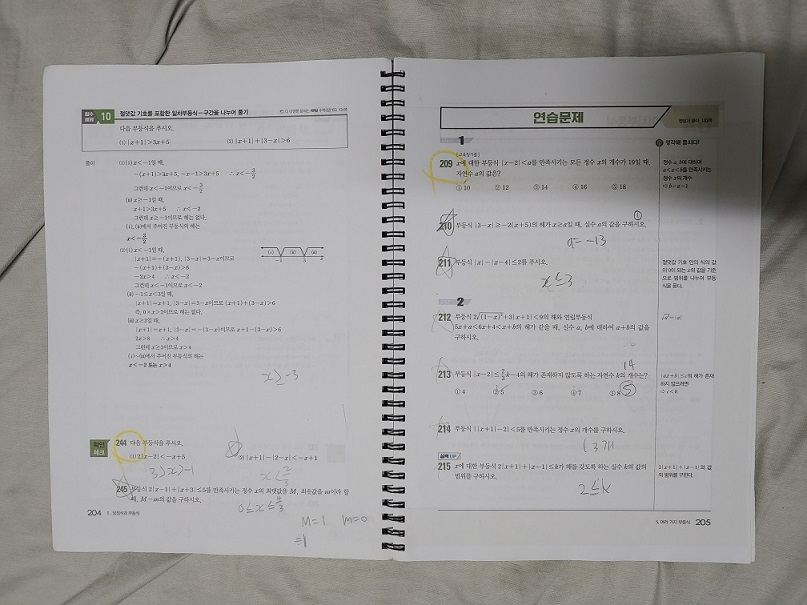 필수 예제 10 절댓값 기호를 포함한 일차부등식 - 구간을 나누어 풀기
다음 부등식을 푸시오.
(1) |x+1|>3x+5 (2) |x+1|+|3-x|>6
풀이 (1) (i) x<-1일 때,
-(x+1)>3x+5, -x-1>3x+5 ∴ x<-3/2
그런데 x<-1이므로 x<-3/2
(ii) x≥-1일 때,
x+1>3x+5 ∴ x<-2
그런데 x≥-1이므로 해는 없다.
(i), (ii)에서 주어진 부등식의 해는
x<-3/2
(2) (i) x<-1일 때,
|x+1|=-(x+1), |3-x|=3-x이므로
-(x+1)+(3-x)>6
-2x>4 ∴ x<-2
그런데 x<-1이므로 x<-2
(ii) -1≤x<3일 때,
|x+1|=x+1, |3-x|=3-x이므로 (x+1)+(3-x)>6
즉, 0×x>2이므로 해는 없다.
(iii) x≥3일 때,
|x+1|=x+1, |3-x|=-(3-x)이므로 x+1-(3-x)>6
2x>8 ∴ x>4
그런데 x≥3이므로 x>4
(i)~(iii)에서 주어진 부등식의 해는
x<-2 또는 x>4
(i) (ii) (iii)
-1 3 x
x≥-3
확인 체크 244 다음 부등식을 푸시오.
(1) 2|x-2|<-x+5 (2) |x+1|-|2-x|<-x+1
3>x>-1
245 부등식 2|x-1|+|x+3|≤5를 만족시키는 정수 x의 최댓값을 M, 최솟값을 m이라 할
때, M-m의 값을 구하시오.
M=1 m=0
=1
204
연습문제
1
생각해 봅시다!
209 x에 대한 부등식 |x-2|<a를 만족시키는 모든 정수 x의 개수가 19일 때,
자연수 a의 값은?
① 10 ② 12 ③ 14 ④ 16 ⑤ 18
정수 a, b에 대하여
a<x<b를 만족시키는
정수 x의 개수
⇨ b-a-1
210 부등식 |3-x|≥-2(x+5)의 해가 x≥a일 때, 실수 a의 값을 구하시오.
a=-13
211 부등식 |x|-|x-4|≤2를 푸시오.
x≤3
절댓값 기호 안의 식의 값
이 0이 되는 x의 값을 기준
으로 범위를 나누어 부등
식을 푼다.
2
212 부등식 2√(1-x)²+3|x+1|<9의 해와 연립부등식
5x+a<6x+4<x+b의 해가 같을 때, 실수 a, b에 대하여 a+b의 값을
구하시오.
√a²=|a|
14
213 부등식 |x-2|≤2/3k-4의 해가 존재하지 않도록 하는 자연수 k의 개수는?
① 4 ② 5 ③ 6 ④ 7 ⑤ 8
|ax+b|≤c의 해가 존재
하지 않으려면
⇨ c<0
214 부등식 ||x+1|-2|<5를 만족시키는 정수 x의 개수를 구하시오.
13개
실력 UP
215 x에 대한 부등식 2|x+1|+|x-1|≤k가 해를 갖도록 하는 실수 k의 값의
범위를 구하시오.
2≤k
2|x+1|+|x-1|의 값
의 범위를 구한다.
205